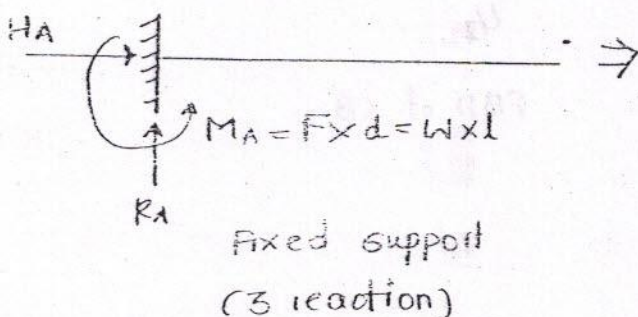 HA
MA = F x d = W x l
RA
Fixed support
(3 reaction)